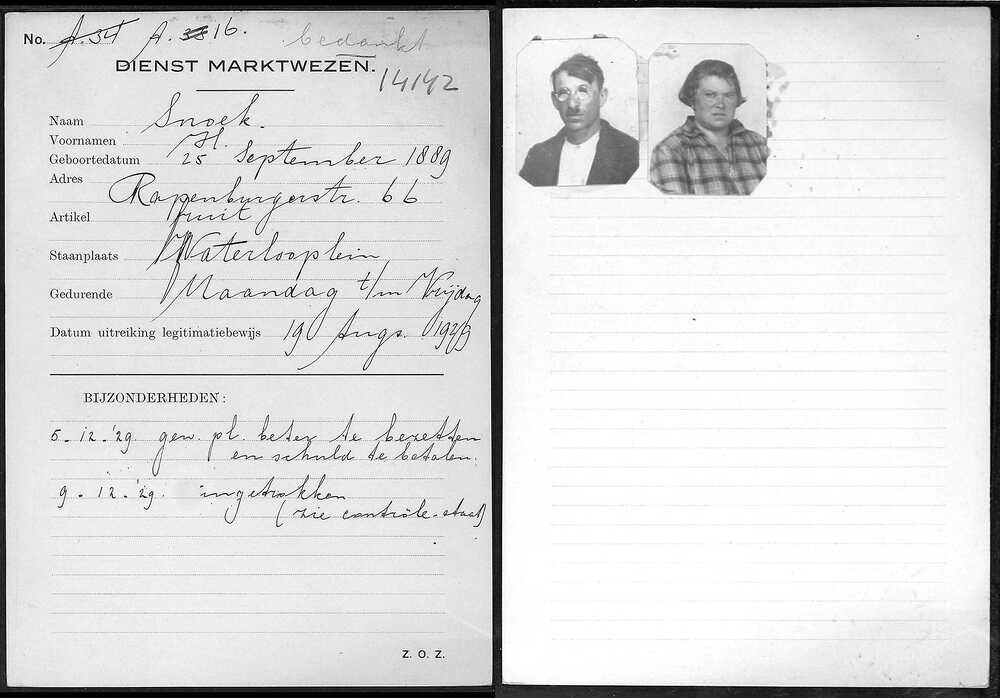 No. A. 34 A. 33 16.
bedankt
DIENST MARKTWEZEN.
14142
Naam Snoek.
Voornamen H.
Geboortedatum 25 September 1889
Adres Rapenburgerstr. 66
Artikel fruit
Staanplaats Waterlooplein
Gedurende Maandag t/m Vrijdag
Datum uitreiking legitimatiebewijs 19 Augs.
BIJZONDERHEDEN:
5-12-'29. gew. pl. beter te bezetten
en schuld te betalen.
9-12-'29. ingetrokken
(zie contrôle-staat)
Z. O. Z.